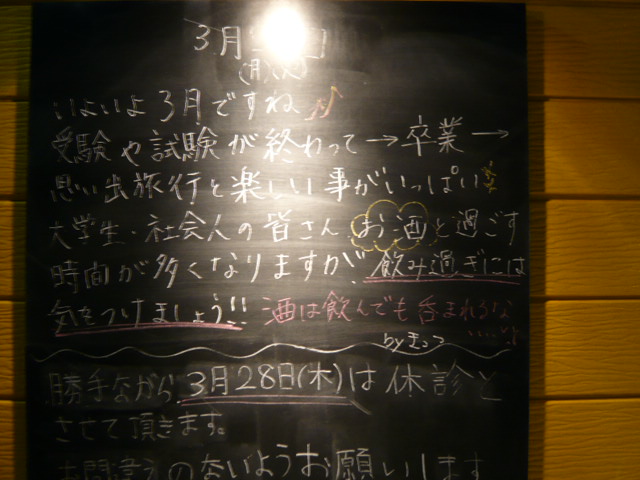 3月
いよいよ3月ですね♪
受験や試験が終わって→卒業→
思い出旅行と楽しい事がいっぱい
大学生・社会人の皆さん、お酒と過ごす
時間が多くなりますが、飲み過ぎには
気をつけましょう!! 酒は飲んでも呑まれるな
byまっつ
勝手ながら3月28日(木)は休診と
させて頂きます。
お間違えのないようお願いします